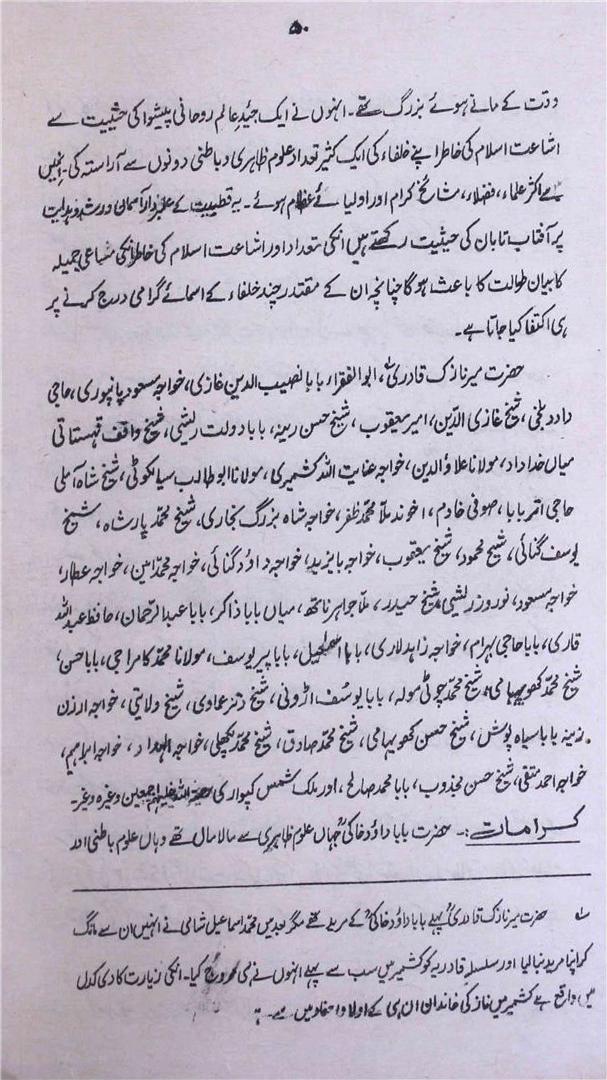 ۵۰
وقت کے مانے ہوئے بزرگ تھے۔ انہوں نے ایک جیّد عالم روحانی پیشوا کی حیثیت سے
اشاعت اسلام کی خاطر اپنے خلفاء کی ایک کثیر تعداد علوم ظاہری و باطنی دونوں سے آراستہ کی۔ انہیں
سے اکثر علماء، فضلاء، مشائخ کرام اور اولیائے عظام ہوئے۔ یہ قطبیت کے علمبردار آسمان ورشد وہدایت
پر آفتاب تابان کی حیثیت رکھتے ہیں انکی تعداد اور اشاعت اسلام کی خاطر انکی مساعی جمیلہ
کا بیان طوالت کا باعث ہوگا چنانچہ ان کے مقتدر چند خلفاء کے اسمائے گرامی درج کرنے پر
ہی اکتفا کیا جاتا ہے۔
حضرت میر نازک قادری، ابو الفقراء بابا نصیب الدین غازی، خواجہ مسعود پانپوری، حاجی
داد بلخی، شیخ غازی الدّین، امیر یعقوب، شیخ حسن رینہ، بابا دولت ریشی، شیخ واقف قہستانی
میاں خداداد، مولانا علاؤ الدین، خواجہ عنایت اللہ کشمیری، مولانا ابو طالب سیالکوٹی، شیخ شاہ آملی
حاجی احمد بابا، صوفی خادم، اخوند ملّا محمّد ظفر، خواجہ شاہ بزرگ بخاری، شیخ محمّد پارشاہ، شیخ
یوسف گنائی، شیخ محمود، شیخ یعقوب، خواجہ بایزید، خواجہ داؤد گنائی، خواجہ محمّد امن، خواجہ عطار،
خواجہ مسعود، نوروز ریشی، شیخ حیدر، ملّا جواہر ناتھ، میاں بابا ذاکر، بابا عبد الرّحمان، حافظ عبد اللہ
قاری، بابا حاجی بہرام، خواجہ زاہد لاری، بابا اسمٰعیل، بابا پیر یوسف، مولانا محمّد کامراجی، بابا حسن،
شیخ محمّد کھویہامی، شیخ محمّد چوٹی مولہ، بابا یوسف اڑونی، شیخ دتر عواوی، شیخ ولایتی، خواجہ ارزن
زینہ بابا سیاہ پوش، شیخ حسن کھویہامی، شیخ محمّد صادق، شیخ محمّد پکھلی، خواجہ الہداد، خواجہ ابراہیم،
خواجہ احمد متقی، شیخ حسن مجذوب، بابا محمّد صالح، اور ملک شمس کپواری رحمۃ اللہ علیہم اجمعین وغیرہ وغیرہ۔
کرامات:۔ حضرت بابا داؤد خاکیؒ جہاں علوم ظاہری سے مالا مال تھے وہاں علوم باطنی اور
؎ حضرت میر نازک قادریؒ پہلے بابا داؤد خاکیؒ کے مرید تھے مگر بعد میں محمّد اسماعیل شامی نے انہیں ان سے مانگ
کر اپنا مرید بنا لیا اور سلسلہ قادریہ کو کشمیر میں سب سے پہلے انہوں نے ہی مروّج کیا۔ انکی زیارت کادی کدل
میں واقع ہے کشمیر میں نازکی خاندان ان ہی کے اولاد واحفاد میں سے ہے